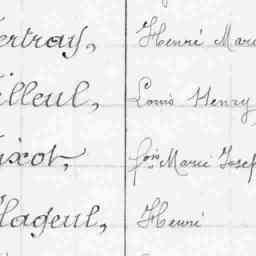 ertray, Henri Mari
illeul, Louis Henry
ixot, fois Marie Josep
lageul, Henri